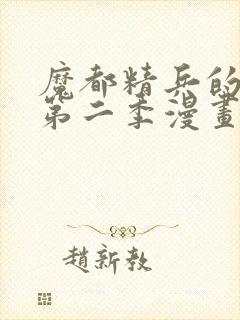 魔都精兵的
第二季漫畫
趙新教